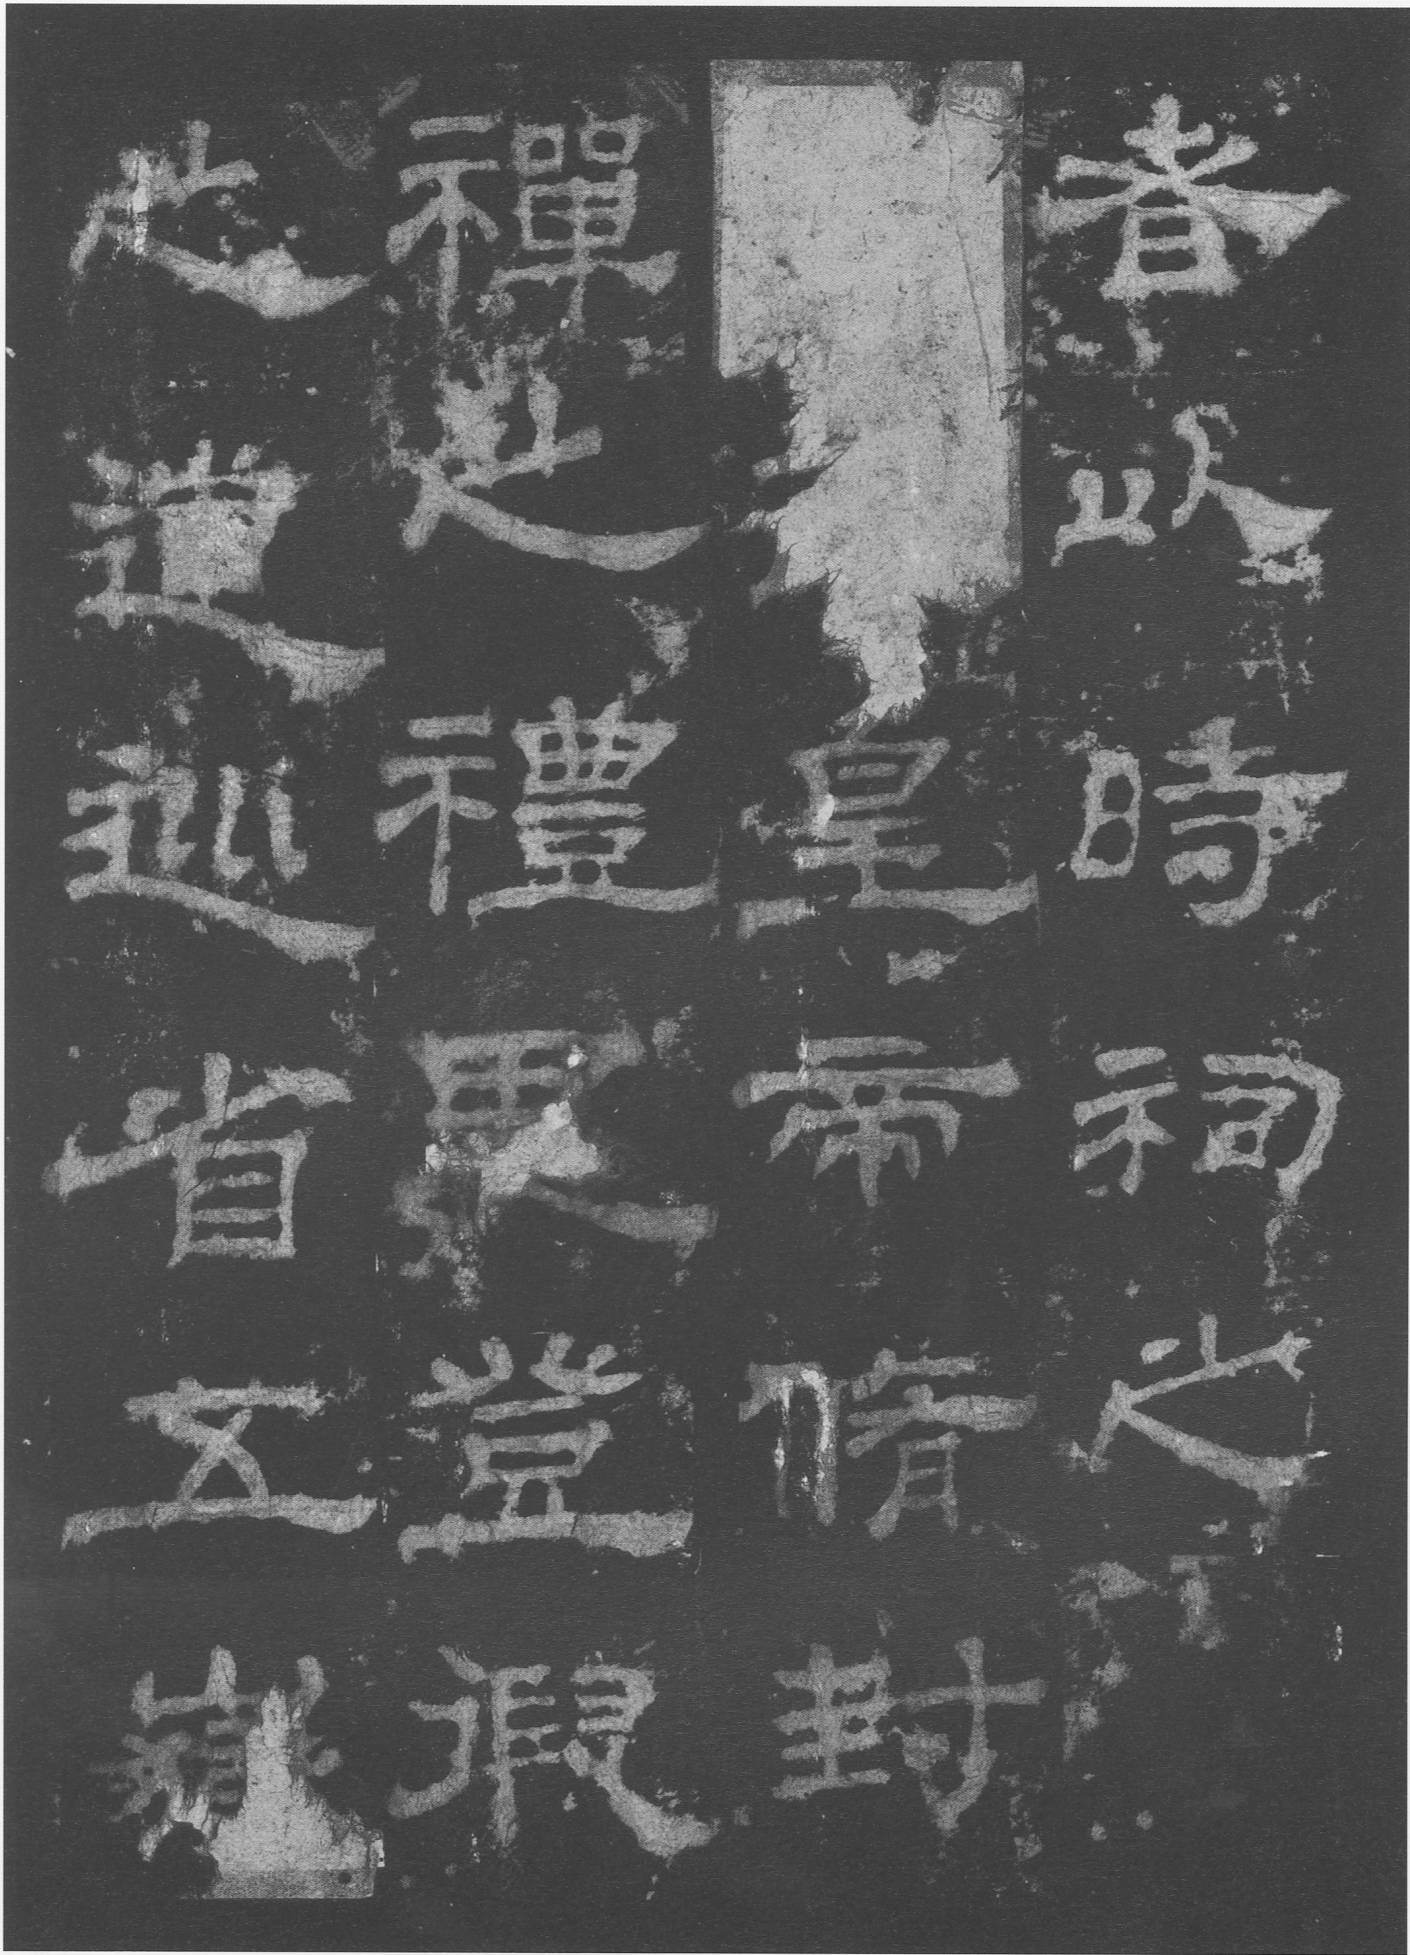 者以時祠之
皇帝脩封
禪之禮思登假
之道巡省五嶽